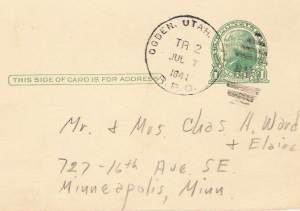 OGDEN, UTAH.
TR 2
JUL 7
1941
R.P.O.
THIS SIDE OF CARD IS FOR ADDRESS
Mr. & Mrs. Chas A. Ward
& Elaine
727-16th Ave. S.E.
Minneapolis, Minn.